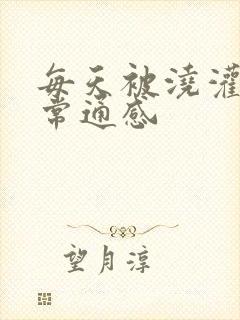 每天被浇灌
常通感
望月淳